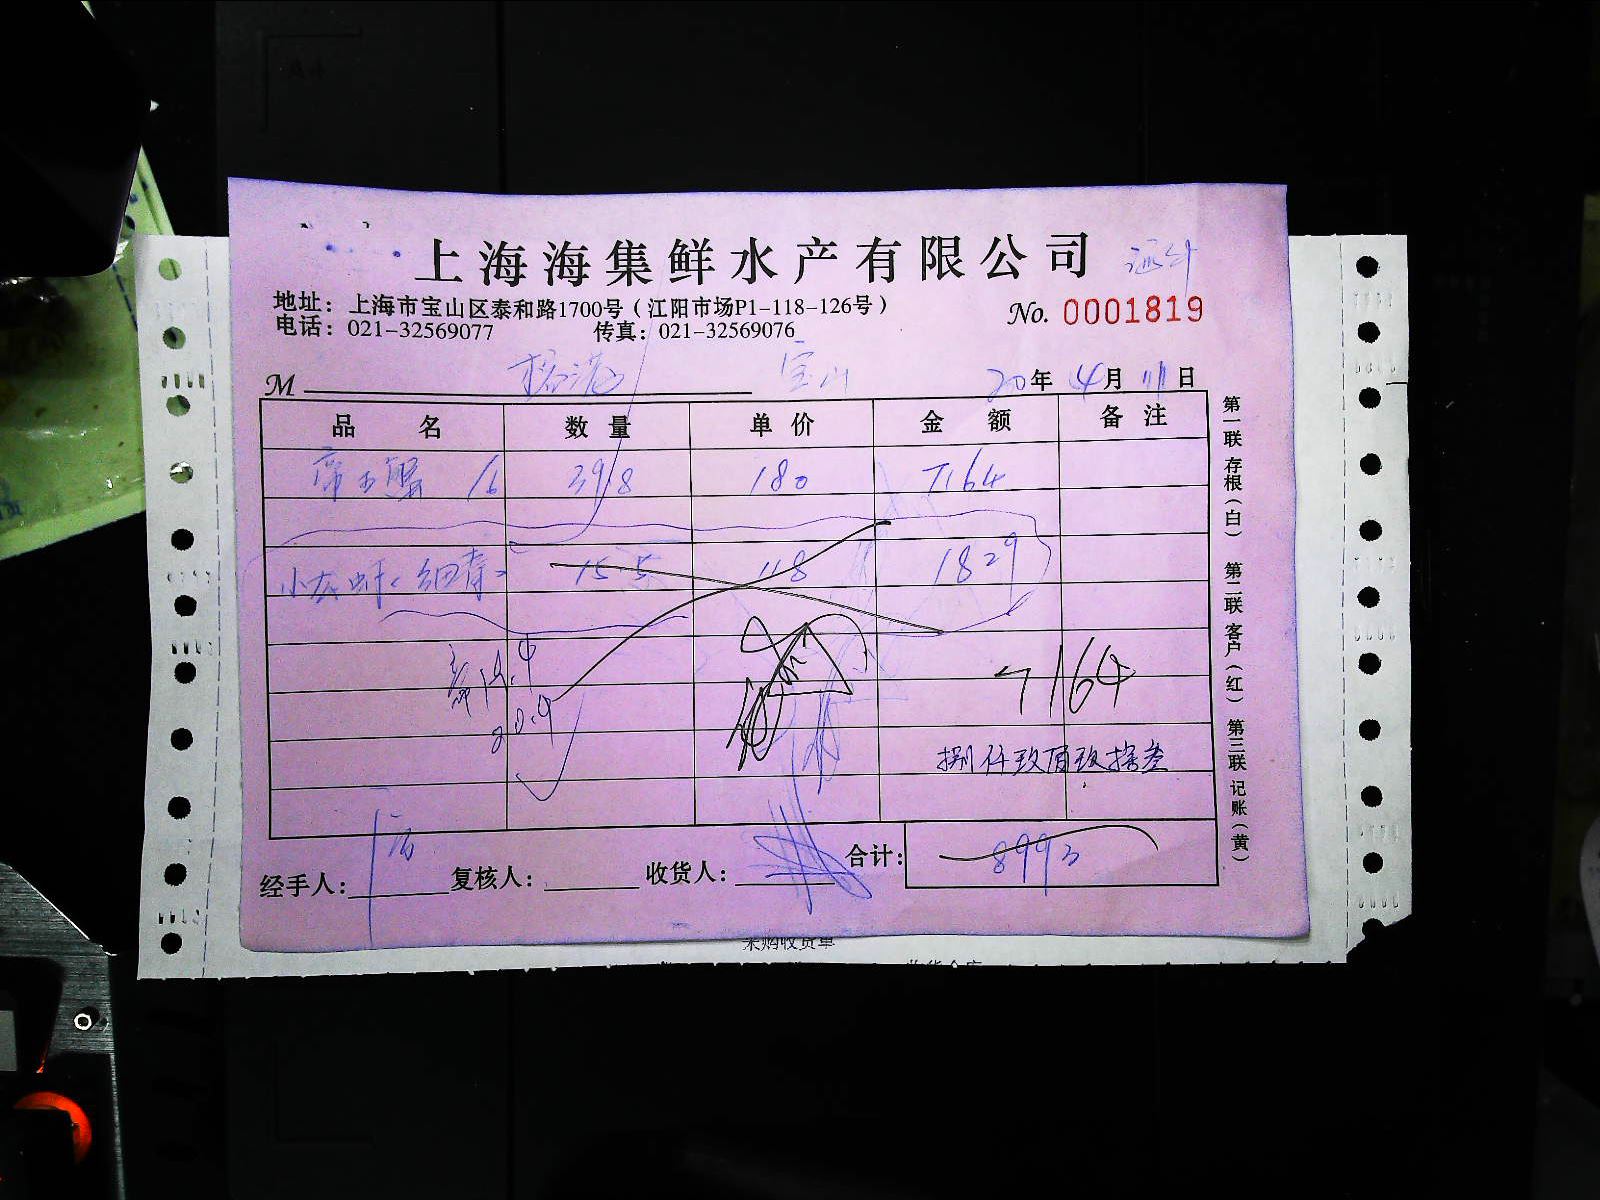 上海海集鲜水产有限公司
地址：上海市宝山区泰和路1700号（江阳市场P1-118-126号）
No. 0001819
电话：021-32569077 传真：021-32569076
M 宝山 20年4月11日
品名 数量 单价 金额 备注
帝王蟹 16 39.8 180 7164
小龙虾 15.5 118 1829
14.4
20.4
7164
捌仟玖佰玖拾叁
合计： 8993
经手人： 复核人： 收货人：
第一联 存根（白） 第二联 客户（红） 第三联 记账（黄）
采购收货单